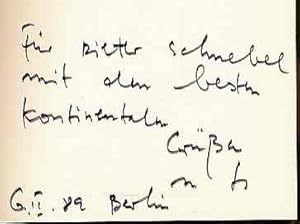 Für Dieter Schnebel
mit den besten
kontinentalen
Grüßen
6.II.89 Berlin